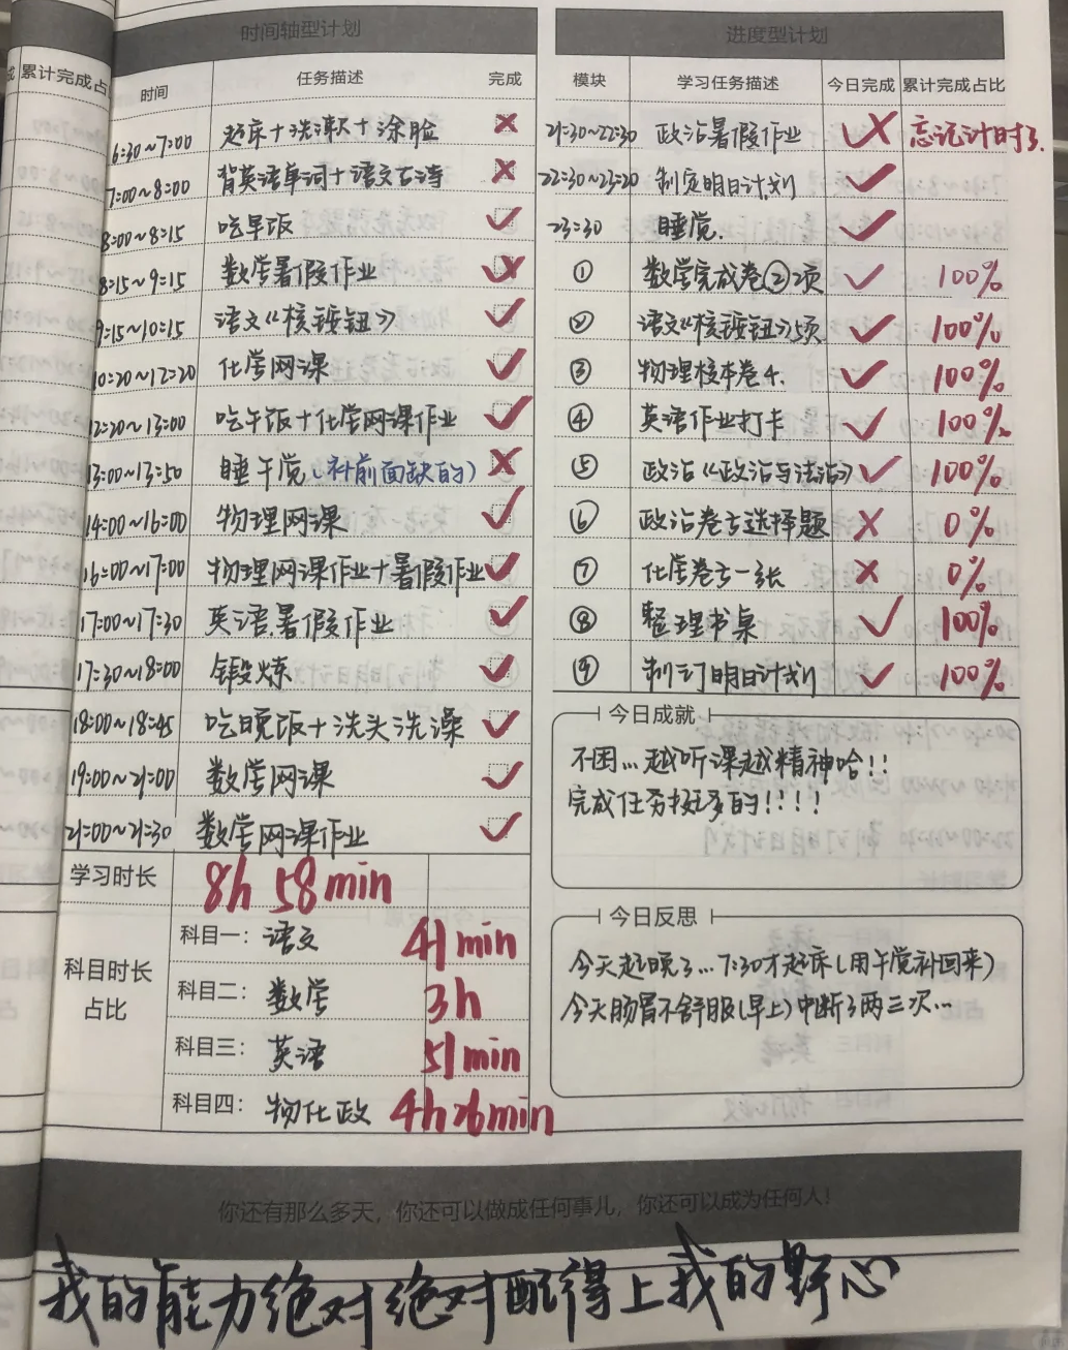 时间轴型计划
累计完成占
时间 任务描述 完成
6:30~7:00 起床+洗漱+涂脸 ×
7:00~8:00 背英语单词+语文古诗 ×
8:00~8:15 吃早饭 ✓
8:15~9:15 数学暑假作业
9:15~10:15 语文《核按钮》 ✓
10:20~12:20 化学网课 ✓
12:20~13:00 吃午饭+化学网课作业 ✓
13:00~13:50 睡午觉(补前面缺的) ×
14:00~16:00 物理网课 ✓
16:00~17:00 物理网课作业+暑假作业 ✓
17:00~17:30 英语暑假作业 ✓
17:30~18:00 锻炼 ✓
18:00~18:45 吃晚饭+洗头洗澡 ✓
19:00~21:00 数学网课 ✓
21:00~21:30 数学网课作业 ✓
学习时长 8h 58min
科目时长
占比
科目一: 语文 41min
科目二: 数学 3h
科目三: 英语 51min
科目四: 物化政 4h26min
进度型计划
模块 学习任务描述 今日完成 累计完成占比
21:30~22:30 政治暑假作业 忘记计时了.
22:30~23:20 制定明日计划 ✓
23:30 睡觉. ✓
① 数学完成卷②2项 ✓ 100%
② 语文《核按钮》5项 ✓ 100%
③ 物理校本卷4. ✓ 100%
④ 英语作业打卡 ✓ 100%
⑤ 政治《政治与法治》 ✓ 100%
⑥ 政治卷子选择题 × 0%
⑦ 化学卷子一张 × 0%
⑧ 整理书桌 ✓ 100%
⑨ 制订明日计划 ✓ 100%
今日成就
不困...越听课越精神哈!!
完成任务挺多的!!!!
今日反思
今天起晚了...7:30才起床(用午觉补回来)
今天肠胃不舒服(早上)中断了两三次...
你还有那么多天，你还可以做成任何事儿，你还可以成为任何人!
我的能力绝对绝对配得上我的野心